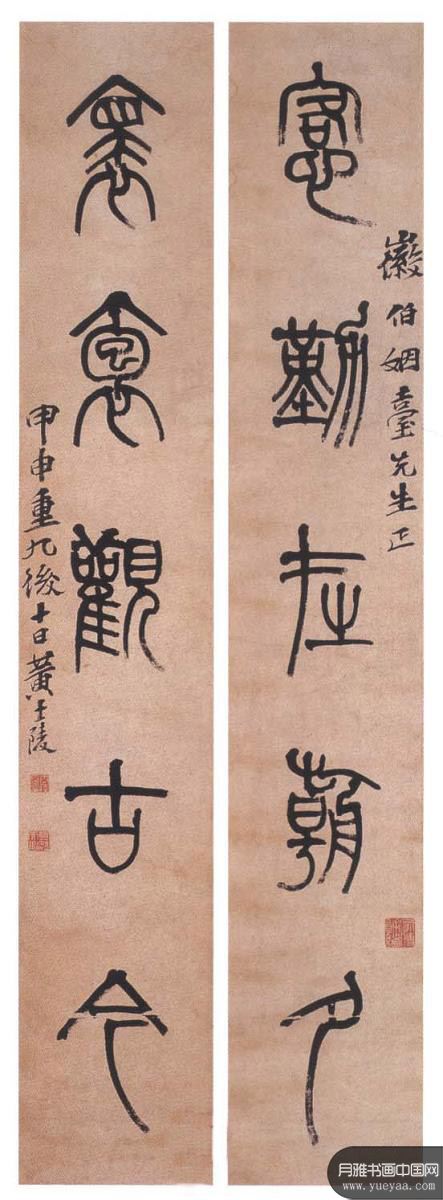 徽伯姻臺先生正
愙勤在朝夕
褱袌觀古今
甲申重九後十日黃士陵
月雅书画中国网
www.yueyaa.com